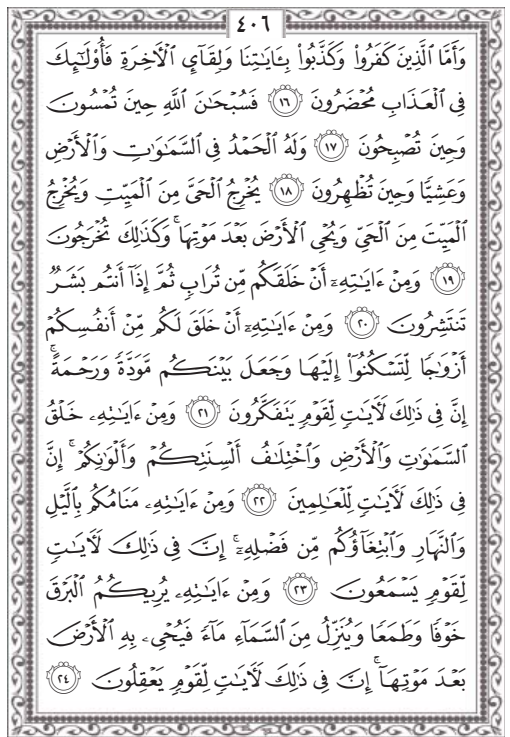 ٤٠٦
وَأَمَّا ٱلَّذِينَ كَفَرُواْ وَكَذَّبُواْ بِـَٔايَٰتِنَا وَلِقَآيِٕ ٱلۡأٓخِرَةِ فَأُوْلَٰٓئِكَ
فِي ٱلۡعَذَابِ مُحۡضَرُونَ ١٦ فَسُبۡحَٰنَ ٱللَّهِ حِينَ تُمۡسُونَ
وَحِينَ تُصۡبِحُونَ ١٧ وَلَهُ ٱلۡحَمۡدُ فِي ٱلسَّمَٰوَٰتِ وَٱلۡأَرۡضِ
وَعَشِيّٗا وَحِينَ تُظۡهِرُونَ ١٨ يُخۡرِجُ ٱلۡحَيَّ مِنَ ٱلۡمَيِّتِ وَيُخۡرِجُ
ٱلۡمَيِّتَ مِنَ ٱلۡحَيِّ وَيُحۡيِ ٱلۡأَرۡضَ بَعۡدَ مَوۡتِهَاۚ وَكَذَٰلِكَ تُخۡرَجُونَ
١٩ وَمِنۡ ءَايَٰتِهِۦٓ أَنۡ خَلَقَكُم مِّن تُرَابٖ ثُمَّ إِذَآ أَنتُم بَشَرٞ
تَنتَشِرُونَ ٢٠ وَمِنۡ ءَايَٰتِهِۦٓ أَنۡ خَلَقَ لَكُم مِّنۡ أَنفُسِكُمۡ
أَزۡوَٰجٗا لِّتَسۡكُنُوٓاْ إِلَيۡهَا وَجَعَلَ بَيۡنَكُم مَّوَدَّةٗ وَرَحۡمَةًۚ
إِنَّ فِي ذَٰلِكَ لَأٓيَٰتٖ لِّقَوۡمٖ يَتَفَكَّرُونَ ٢١ وَمِنۡ ءَايَٰتِهِۦ خَلۡقُ
ٱلسَّمَٰوَٰتِ وَٱلۡأَرۡضِ وَٱخۡتِلَٰفُ أَلۡسِنَتِكُمۡ وَأَلۡوَٰنِكُمۡۚ إِنَّ
فِي ذَٰلِكَ لَأٓيَٰتٖ لِّلۡعَٰلِمِينَ ٢٢ وَمِنۡ ءَايَٰتِهِۦ مَنَامُكُم بِٱلَّيۡلِ
وَٱلنَّهَارِ وَٱبۡتِغَآؤُكُم مِّن فَضۡلِهِۦٓۚ إِنَّ فِي ذَٰلِكَ لَأٓيَٰتٖ
لِّقَوۡمٖ يَسۡمَعُونَ ٢٣ وَمِنۡ ءَايَٰتِهِۦ يُرِيكُمُ ٱلۡبَرۡقَ
خَوۡفٗا وَطَمَعٗا وَيُنَزِّلُ مِنَ ٱلسَّمَآءِ مَآءٗ فَيُحۡيِۦ بِهِ ٱلۡأَرۡضَ
بَعۡدَ مَوۡتِهَآۚ إِنَّ فِي ذَٰلِكَ لَأٓيَٰتٖ لِّقَوۡمٖ يَعۡقِلُونَ ٢٤